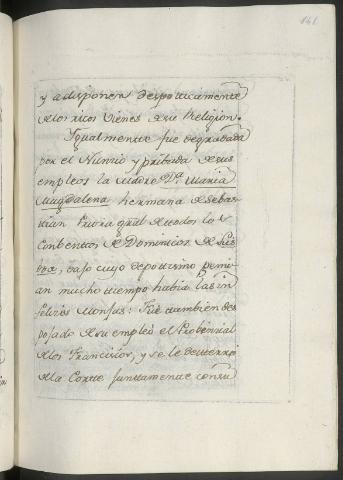 141
y a disponer despoticamente
de los ricos vienes de su Religion.
Igualmente fue degradada
por el Nunnio y pribada de sus
empleos la Madre D.ª Maria
Magdalena hermana de Sebas
tian Priora gral de todos los
Conbentos de Dominicos de Lis
boa, bajo cuyo depotismo pemi-
an mucho tiempo habia las in
felices Monjas: Fue tambien des
pojado de su empleo el Probenzial
de los Franciscos, y se le desterro
de la Corte juntamente con su